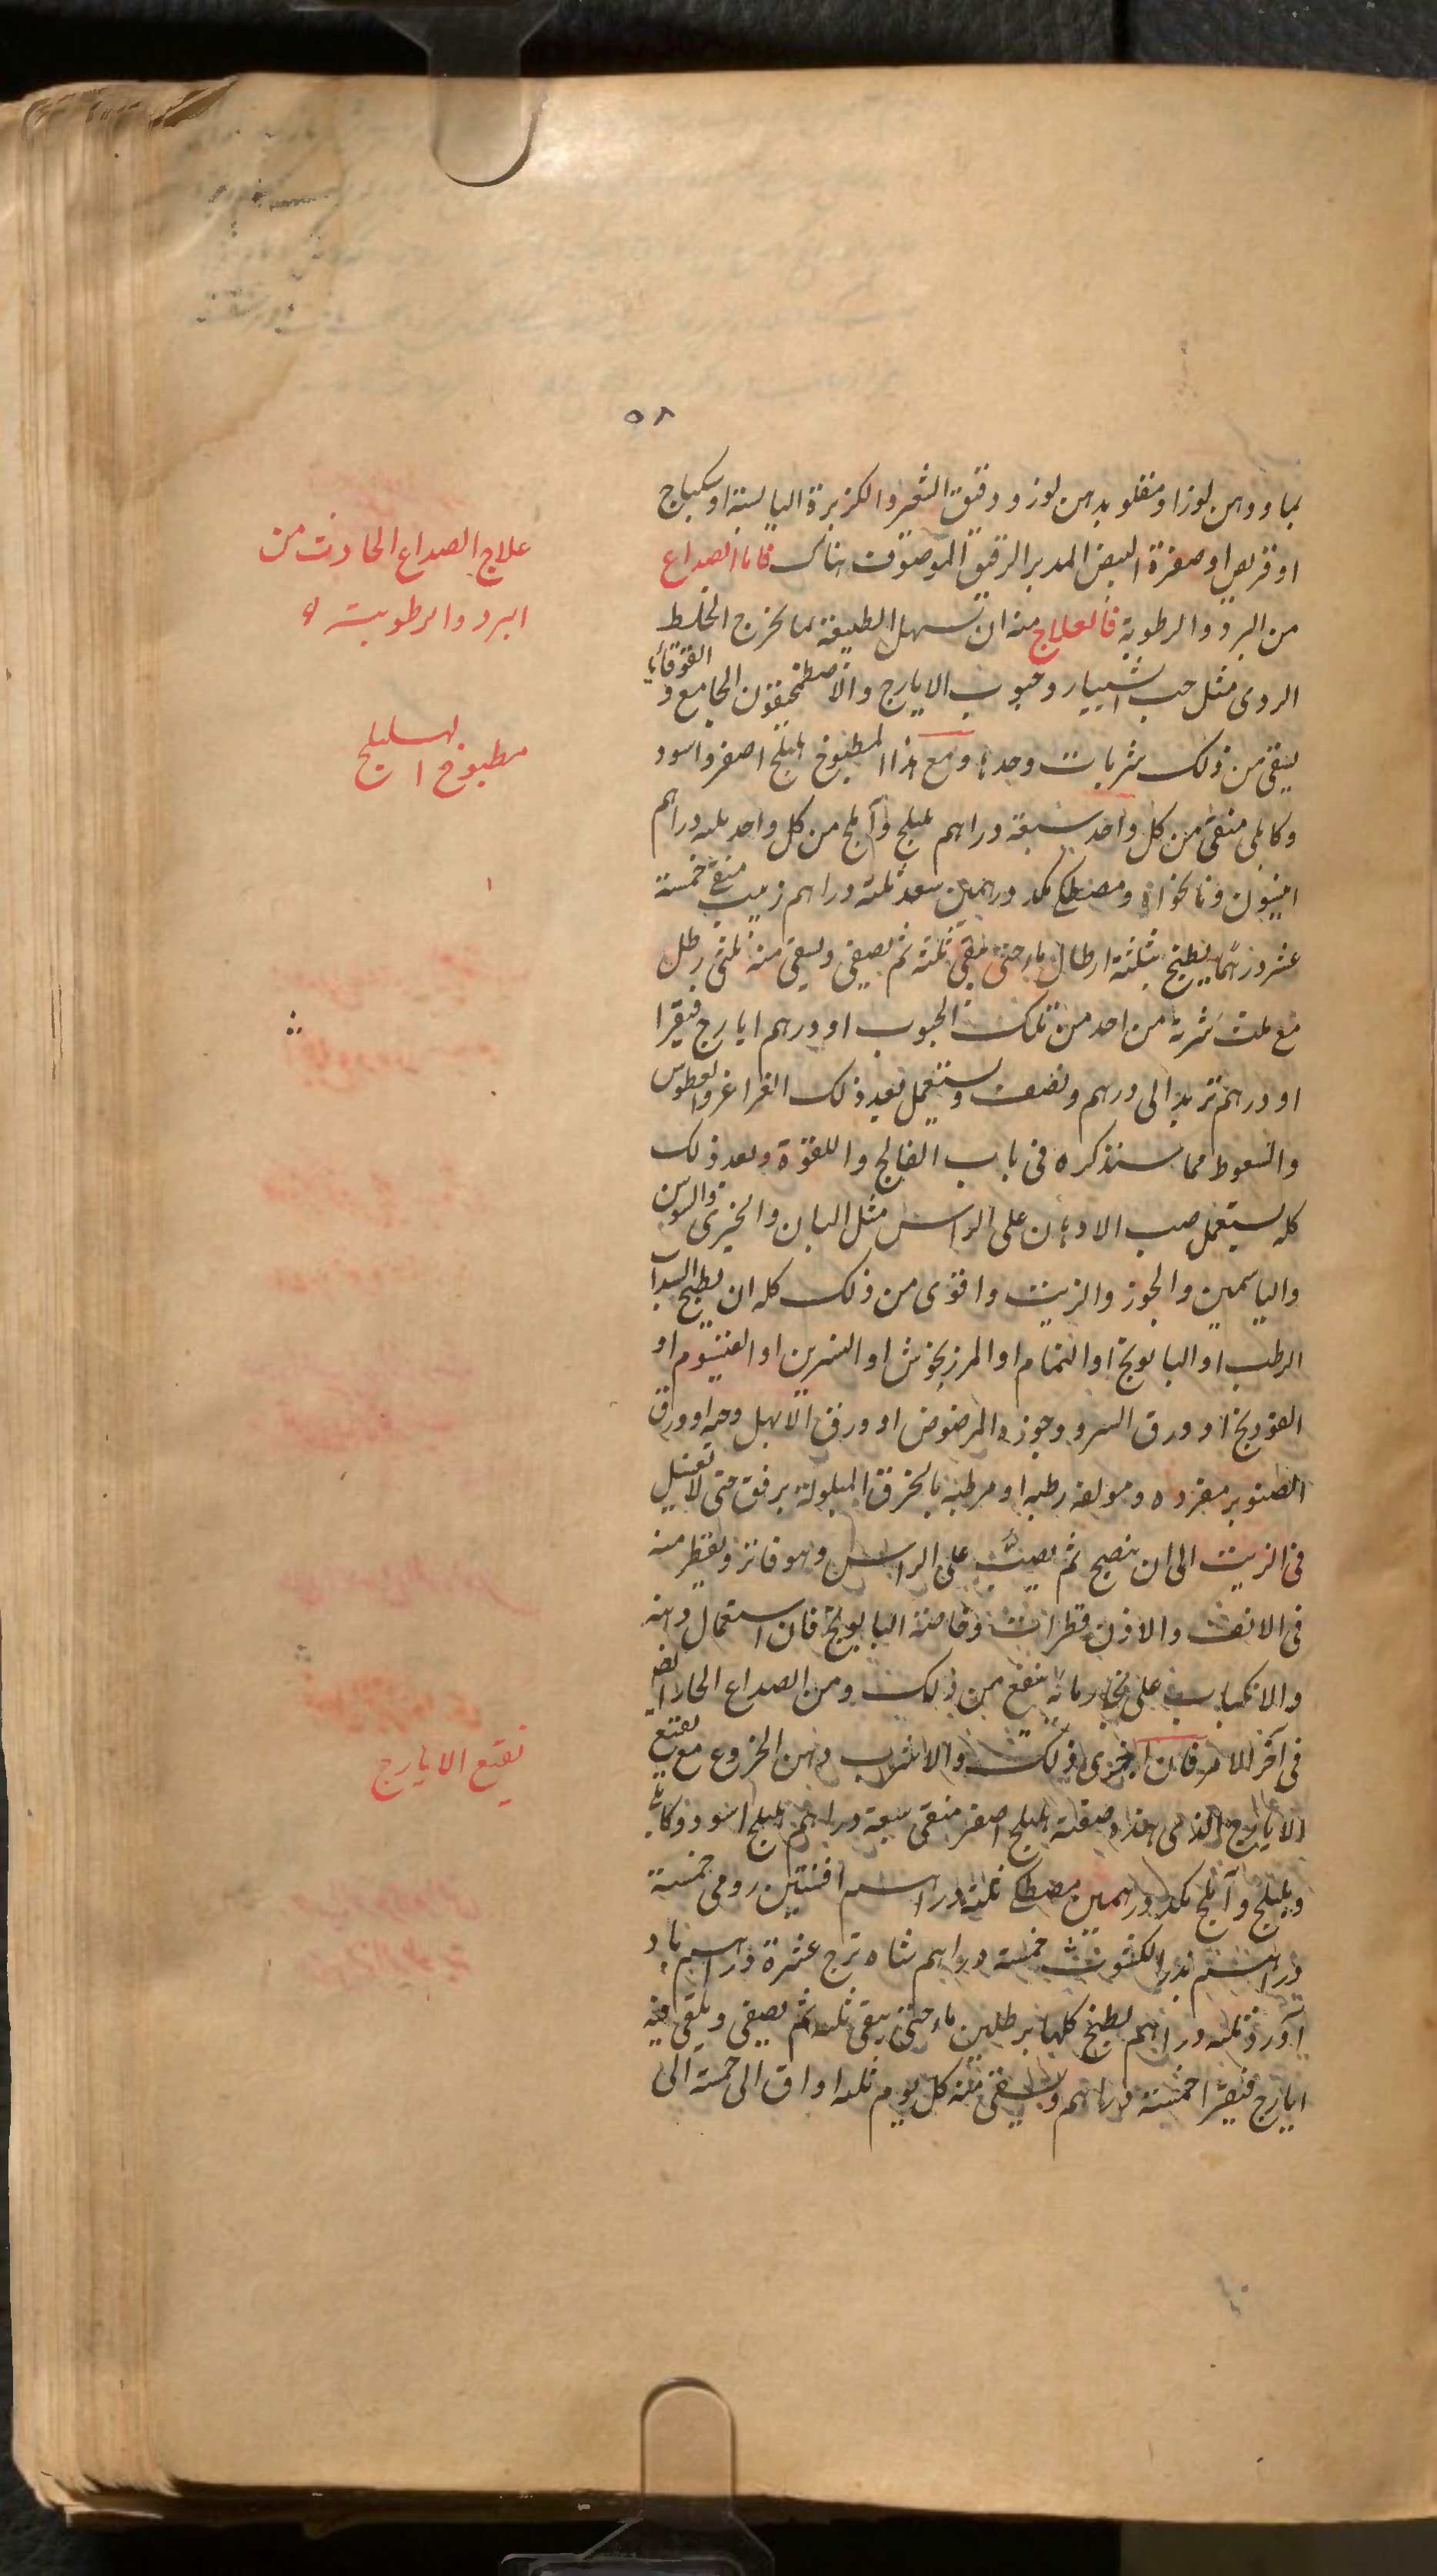 ٥٨
بماء ودهن لوز او مقلو بدهن لوز ودقيق الشعير والكزبرة اليابسة او سكباج
او قريص او صفرة البيض المدبر الرقيق الموصوف هناك فاما الصداع
من البرد والرطوبة فالعلاج منه ان تسهل الطبيعة بما يخرج الخلط
الردى مثل حب الشبيار وحبوب الايارج والاصطمخيقون الجامع والقوقايا
يسقى من ذلك شربات وحدها ومع هذا المطبوخ هليلج اصفر واسود
وكابلى منقى من كل واحد سبعة دراهم بليلج وآملج من كل واحد ثلثة دراهم
انيسون ونانخواه ومصطكى مكد درهمين سعد ثلثة دراهم زبيب منقى خمسة
عشر درهما يطبخ بثلثة ارطال ماء حتى يبقى ثلثه ثم يصفى ويسقى منه ثلثى رطل
مع ثلث شربة من احد من تلك الحبوب او درهم ايارج فيقرا
او درهم تربد الى درهم ونصف ويستعمل بعد ذلك الغراغر والعطوس
والسعوط مما سنذكره فى باب الفالج واللقوة وبعد ذلك
كله يستعمل صب الادهان على الراس مثل البان والخيرى والسوسن
والياسمين والجوز والزيت واقوى من ذلك كله ان يطبخ السداب
الرطب او البابونج او النمام او المرزنجوش او النسرين او القيسوم او
الفودنج او ورق السرو وجوزه المرضوض او ورق الابهل وحبه او ورق
الصنوبر مفرده ومولفه رطبه او مرطبه بالخرق المبلولة برفق حتى لا تغتسل
فى الزيت الى ان ينضج ثم يصب على الراس وهو فاتر ويقطر منه
فى الانف والاذن قطرات وخاصة البابونج فان استعمال دهنه
والانكباب على بخار مائه ينفع من ذلك ومن الصداع الحار ايضا
فى آخر الامر فان اجزى ذلك والا شرب دهن الخروع مع نقيع
الايارج الذى هذه صفته هليلج اصفر منقى سبعة دراهم هليلج اسود وكابلى
وبليلج وآملج مكد درهمين مصطكى ثلثة دراهم افسنتين رومى خمسة
دراهم بزر الكشوث خمسة دراهم شاه ترج عشرة دراهم باد
آورد ثلثه دراهم يطبخ كلها برطلين ماء حتى يبقى ثلثه ثم يصفى ويلقى فيه
ايارج فيقرا خمسة دراهم ويسقى منه كل يوم ثلث اواق الى خمسة الى
علاج الصداع الحادث من
البرد والرطوبة
مطبوخ الهليلج
نقيع الايارج